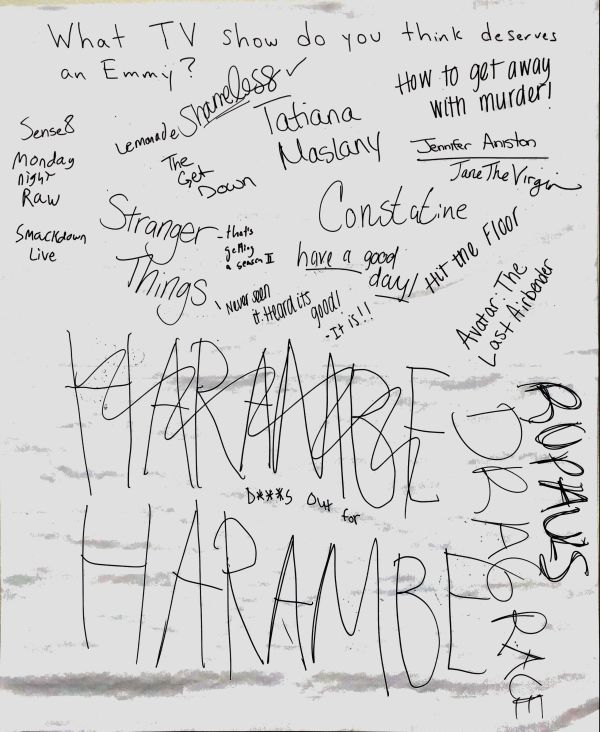 What TV show do you think deserves
an Emmy?
Shameless ✓
How to get away
with murder!
Sense8
Lemonade
Tatiana
Maslany
Monday
night
Raw
The
Get
Down
Jennifer Aniston
Jane The Virgin
Smackdown
Live
Stranger
Things
- that's
getting
a season II
Constatine
have a good
day!
Hit the Floor
Never seen
it. Heard its
good!
- It is!!
Avatar: The
Last Airbender
HARAMBE
D***s out
for
HARAMBE
RUPAULS
DRAG RACE